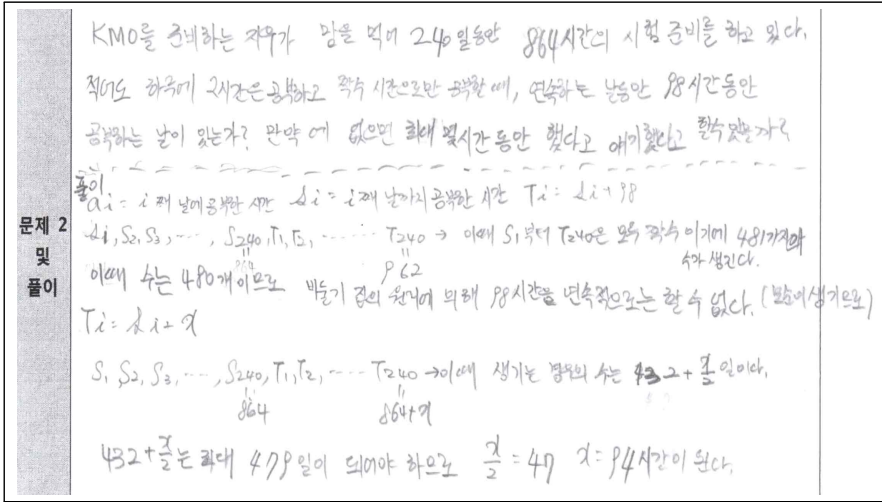 KMO를 준비하는 지우가 맘을 먹어 240일동안 864시간의 시험 준비를 하고 있다.
적어도 하루에 2시간은 공부하고 짝수 시간으로만 공부할 때, 연속하는 날동안 98시간동안
공부하는 날이 있는가? 만약에 없으면 최대 몇시간동안 했다고 얘기했다고 할수 있을까?
풀이
ai = i째 날에 공부한 시간 Si = i째 날까지 공부한 시간 Ti = Si + 98
S1, S2, S3, ..., S240, T1, T2, ...... T240 → 이때 S1부터 T240은 모두 짝수 이기에 481가지의
수가 생긴다.
864
962
문제 2
및
풀이
이때 수는 480개이므로 비둘기 집의 원리에 의해 98시간을 연속적으로는 할 수 없다. (모순이 생기므로)
Ti = Si + x
S1, S2, S3, ..., S240, T1, T2, .... T240 → 이때 생기는 경우의 수는 432 + x/2 일이다.
864
864+x
432 + x/2는 최대 479일이 되어야 하므로 x/2 = 47 x = 94시간이 된다.